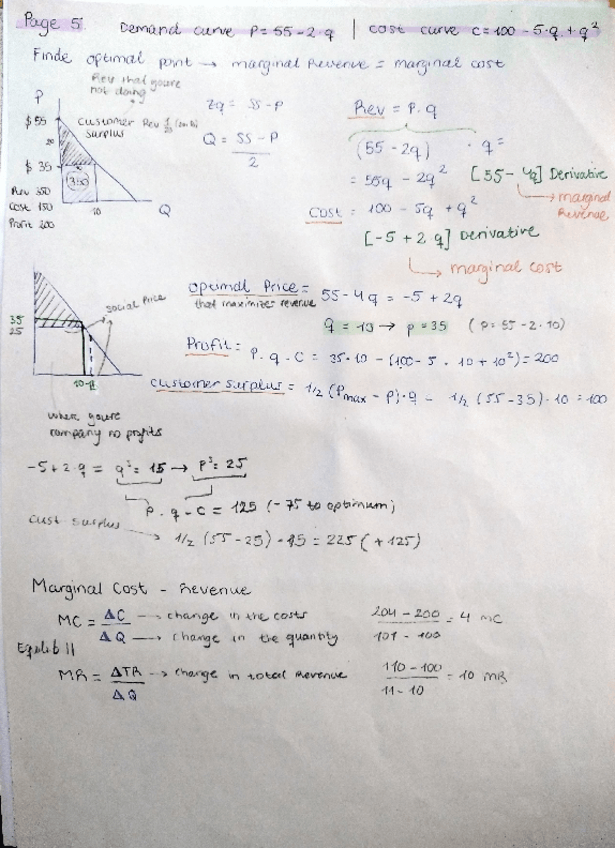 Page 5 Demand curve P = 55 - 2·q | cost curve c = 100 - 5·q + q²
Finde optimal point → marginal Revenue = marginal cost
Rev that you're
not doing
P
$55
customer
surplus
20
$35
350
Rev 350
Cost 150
Profit 200
10
Q
2q = 55 - P
Q = 55 - P
2
Rev = P · q
(55 - 2q) · q =
= 55q - 2q² [55 - 4q] Derivative
→ marginal
Revenue
Cost = 100 - 5q + q²
[-5 + 2 q] Derivative
→ marginal cost
social Price
35
25
Optimal Price = 55 - 4q = -5 + 2q
that maximizes revenue
q = 10 → p = 35 (p = 55 - 2·10)
Profit =
P · q - C = 35·10 - (100 - 5 · 10 + 10²) = 200
customer surplus = 1/2 (Pmax - P)·q - 1/2 (55 - 35)·10 = 100
where you're
company no profits
-5 + 2·q = q² = 15 → P² = 25
P · q - C = 125 (-75 to optimum)
cust surplus
→ 1/2 (55 - 25) · 15 = 225 (+125)
Marginal Cost - Revenue
MC = ΔC → change in the costs
ΔQ → change in the quantity
204 - 200 = 4 MC
101 - 100
MR = ΔTR → change in total Revenue
ΔQ
110 - 100 = 10 MR
11 - 10